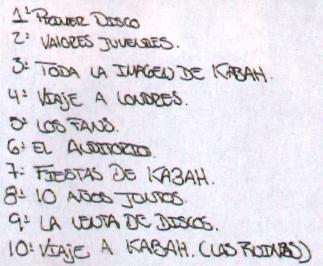 1º PRIMER DISCO
2º VALORES JUVENILES.
3º TODA LA IMAGEN DE KABAH.
4º VIAJE A LONDRES.
5º LOS FANS.
6º EL AUDITORIO
7º FIESTAS DE KABAH.
8º 10 AÑOS JUNTOS.
9º LA VENTA DE DISCOS.
10º VIAJE A KABAH. (LAS RUINAS)